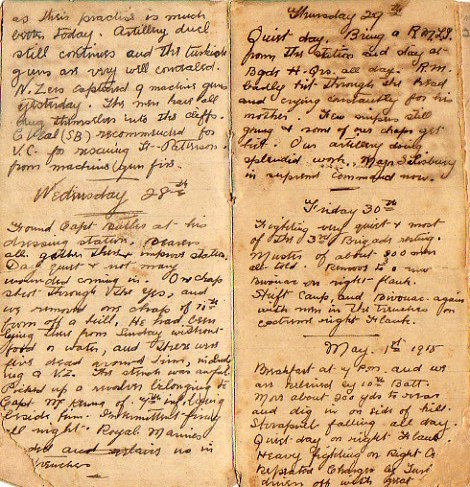 as their practice is much
better today. Artillery duel
still continues and the turkish
guns are very well concealed.
N. Zers captured 9 machine guns
yesterday. The men have all
dug themselves into the cliffs.
(SB) recommended for
V.C. for rescuing Lt. Patterson
from machine gun fire.
Wednesday 28th
Found Capt Butler at his
dressing station, Bearers
all gather there & improve station.
Day quiet & not many
wounded coming in. One chap
shot through the eye, and
we removed one chap of 11th
from off a hill, He had been
lying there from Sunday without
food or water, and there were
five dead around him, includ
ing a N.Z. The stench was awful.
Picked up a revolver belonging to
Capt of 4th inf lying
beside him. Intermittent firing
all night. Royal Marines
us in
trenches
Thursday 29th
Quiet day. Bring a R.M.L.I.
from the station and stay at
Bgde H-Qrs. all day. R.M.
badly hit through the head
and crying constantly for his
mother. Few snipers still
going & some of our chaps get
hit. Our artillery doing
splendid work. Major Salisbury
in supreme Command now.
Friday 30th
Fighting very quiet & most
of the 3rd Brigade resting.
Muster of about 800 men
all told. Remove to a new
Bivouac on right flank.
Shift Camp, and Bivouac again
with men in the trenches on
extreme right flank.
May. 1st 1915
Breakfast at 4 pm. and we
are relieved by 10th Batt.
Move about 900 yds to rear
and dig in on side of hill.
Shrapnel falling all day.
Quiet day on right flank.
Heavy fighting on Right &
Repeated Charges as Turks
driven off with great